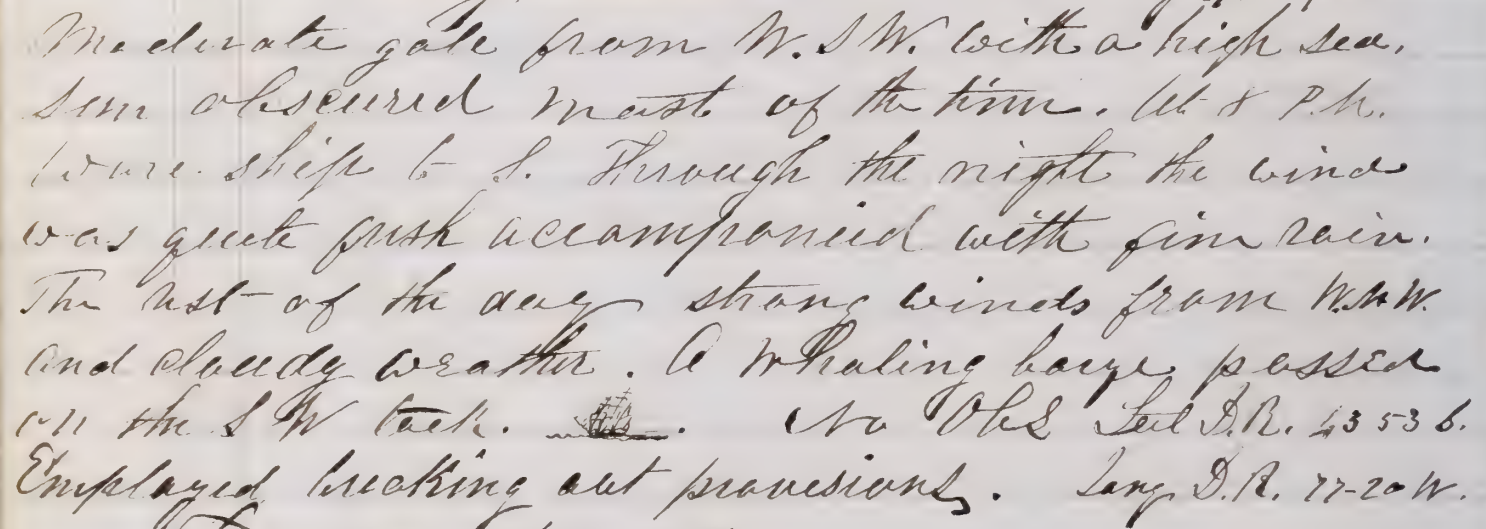 Moderate gale from W.S W. with a high sea.
Sun obscured most of the time. At 8 P.M.
wore ship to S. Through the night the wind
was quite fresh accompanied with fine rain.
The rest of the day strong winds from W.N W.
and cloudy weather. A Whaling barge passed
on the S W tack. No Obs Lat D.R. 43 53 S.
Employed breaking out provisions. Long D.R. 77-20 W.